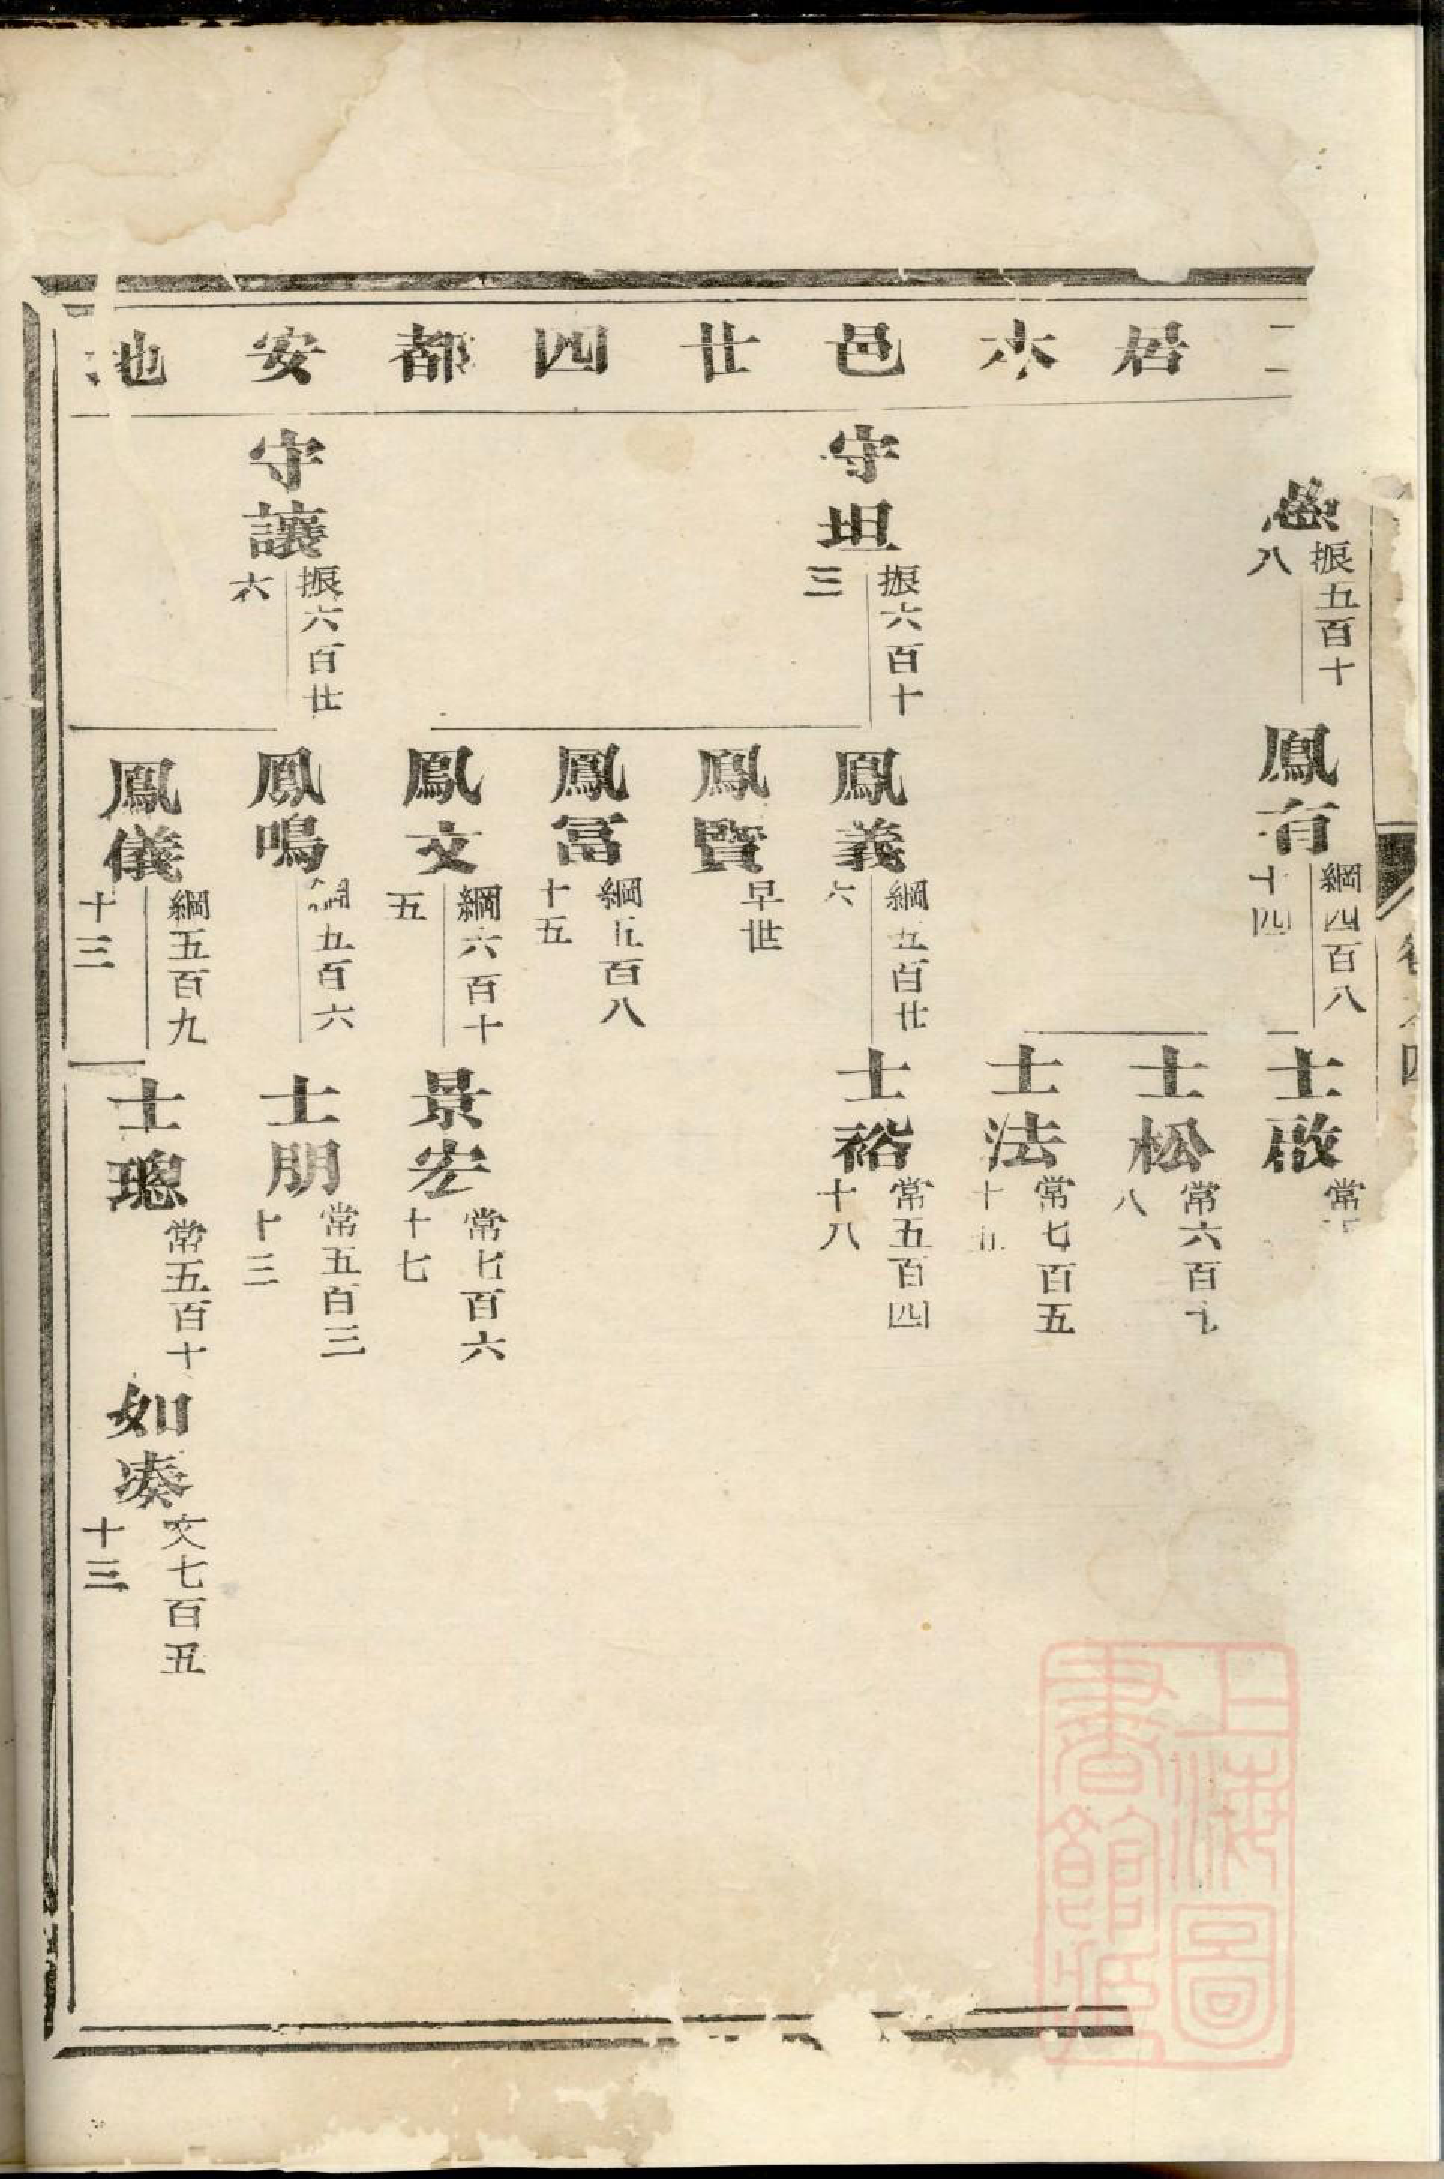 居本邑廿四都安地
愚
振五百十八
鳳有
綱四百八十四
士啟
常
士松
常六百七八
士法
常七百五十五
守坦
振六百十三
鳳義
綱五百廿六
士裕
常五百四十八
鳳賢
早世
鳳富
綱五百八十五
鳳文
綱六百十五
景宏
常七百六十七
守讓
振六百廿六
鳳鳴
綱五百六
士朋
常五百三十三
鳳儀
綱五百九十三
士聰
常五百十
如凑
文七百五十三
上海圖書館藏